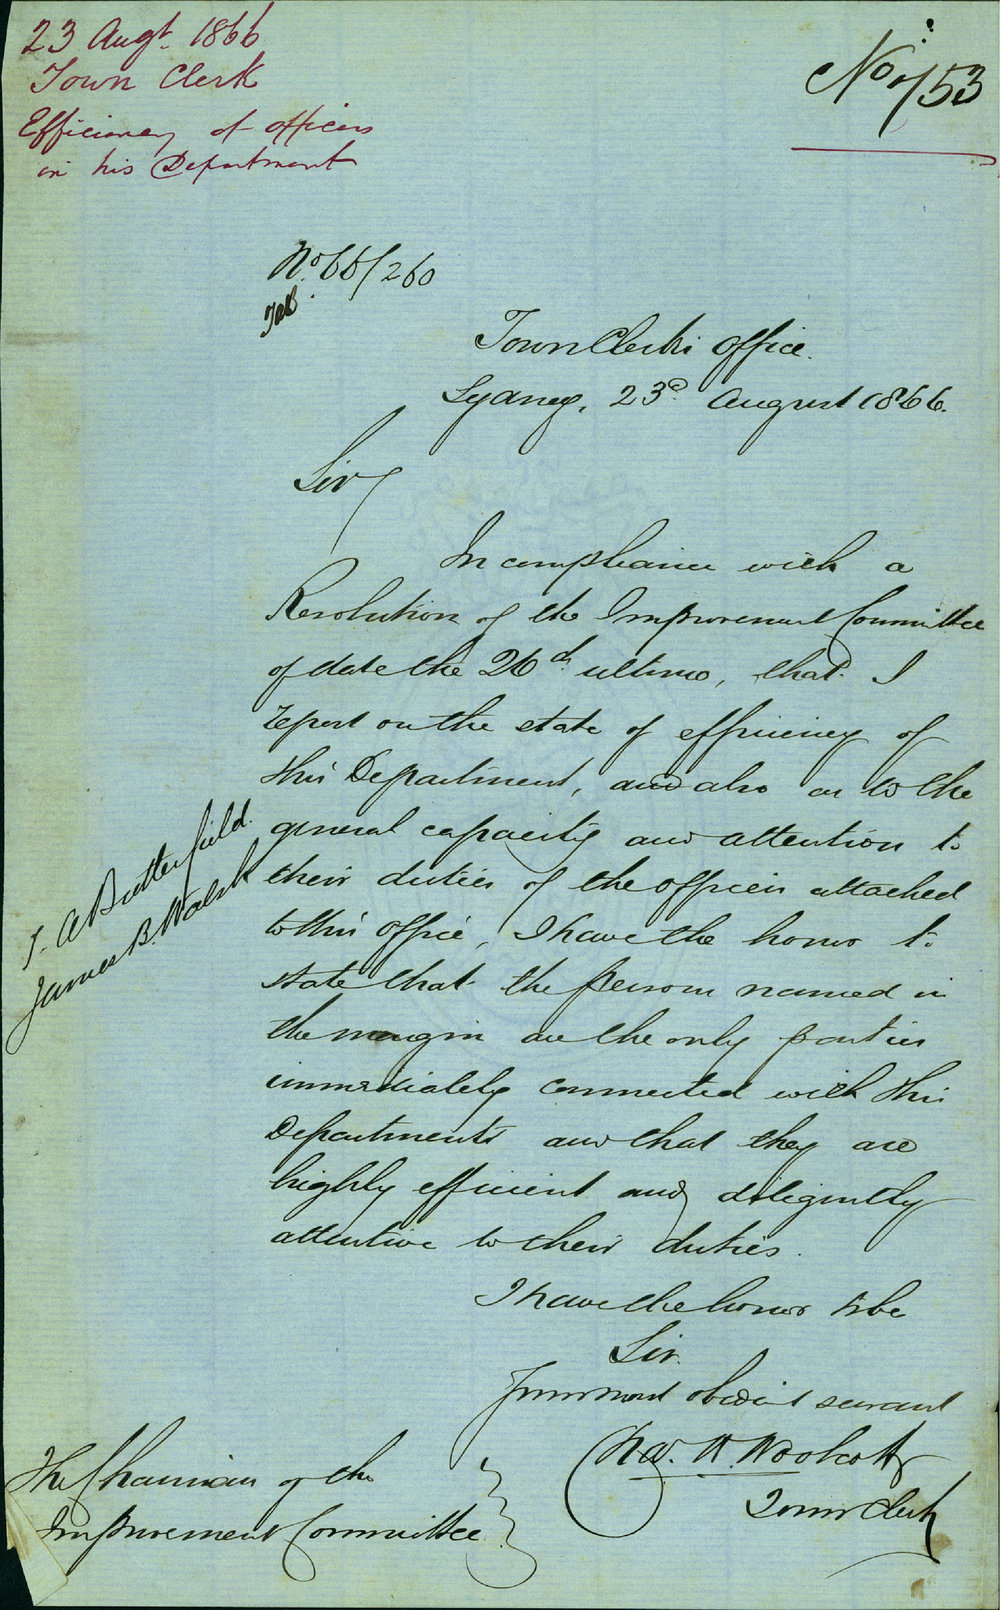 23 Augt. 1866
Town Clerk
Efficiency of officers
in his Department
No 753
No. 66/260
TAB.
Town Clerk's Office.
Sydney, 23d. August 1866.
Sir,
In compliance with a
Resolution of the Improvement Committee
of date the 26th ultimo, that I
report on the state of efficiency of
this Department, and also as to the
general capacity and attention to
their duties of the officers attached
to this Office, I have the honor to
state that the persons named in
the margin are the only parties
immediately connected with this
Department and that they are
highly efficient and diligently
attentive to their duties.
T. A Butterfield.
James B. Walsh
I have the honor to be
Sir.
Your most obedient servant
Chas. H. Woolcott
Town Clerk
The Chairman of the
Improvement Committee